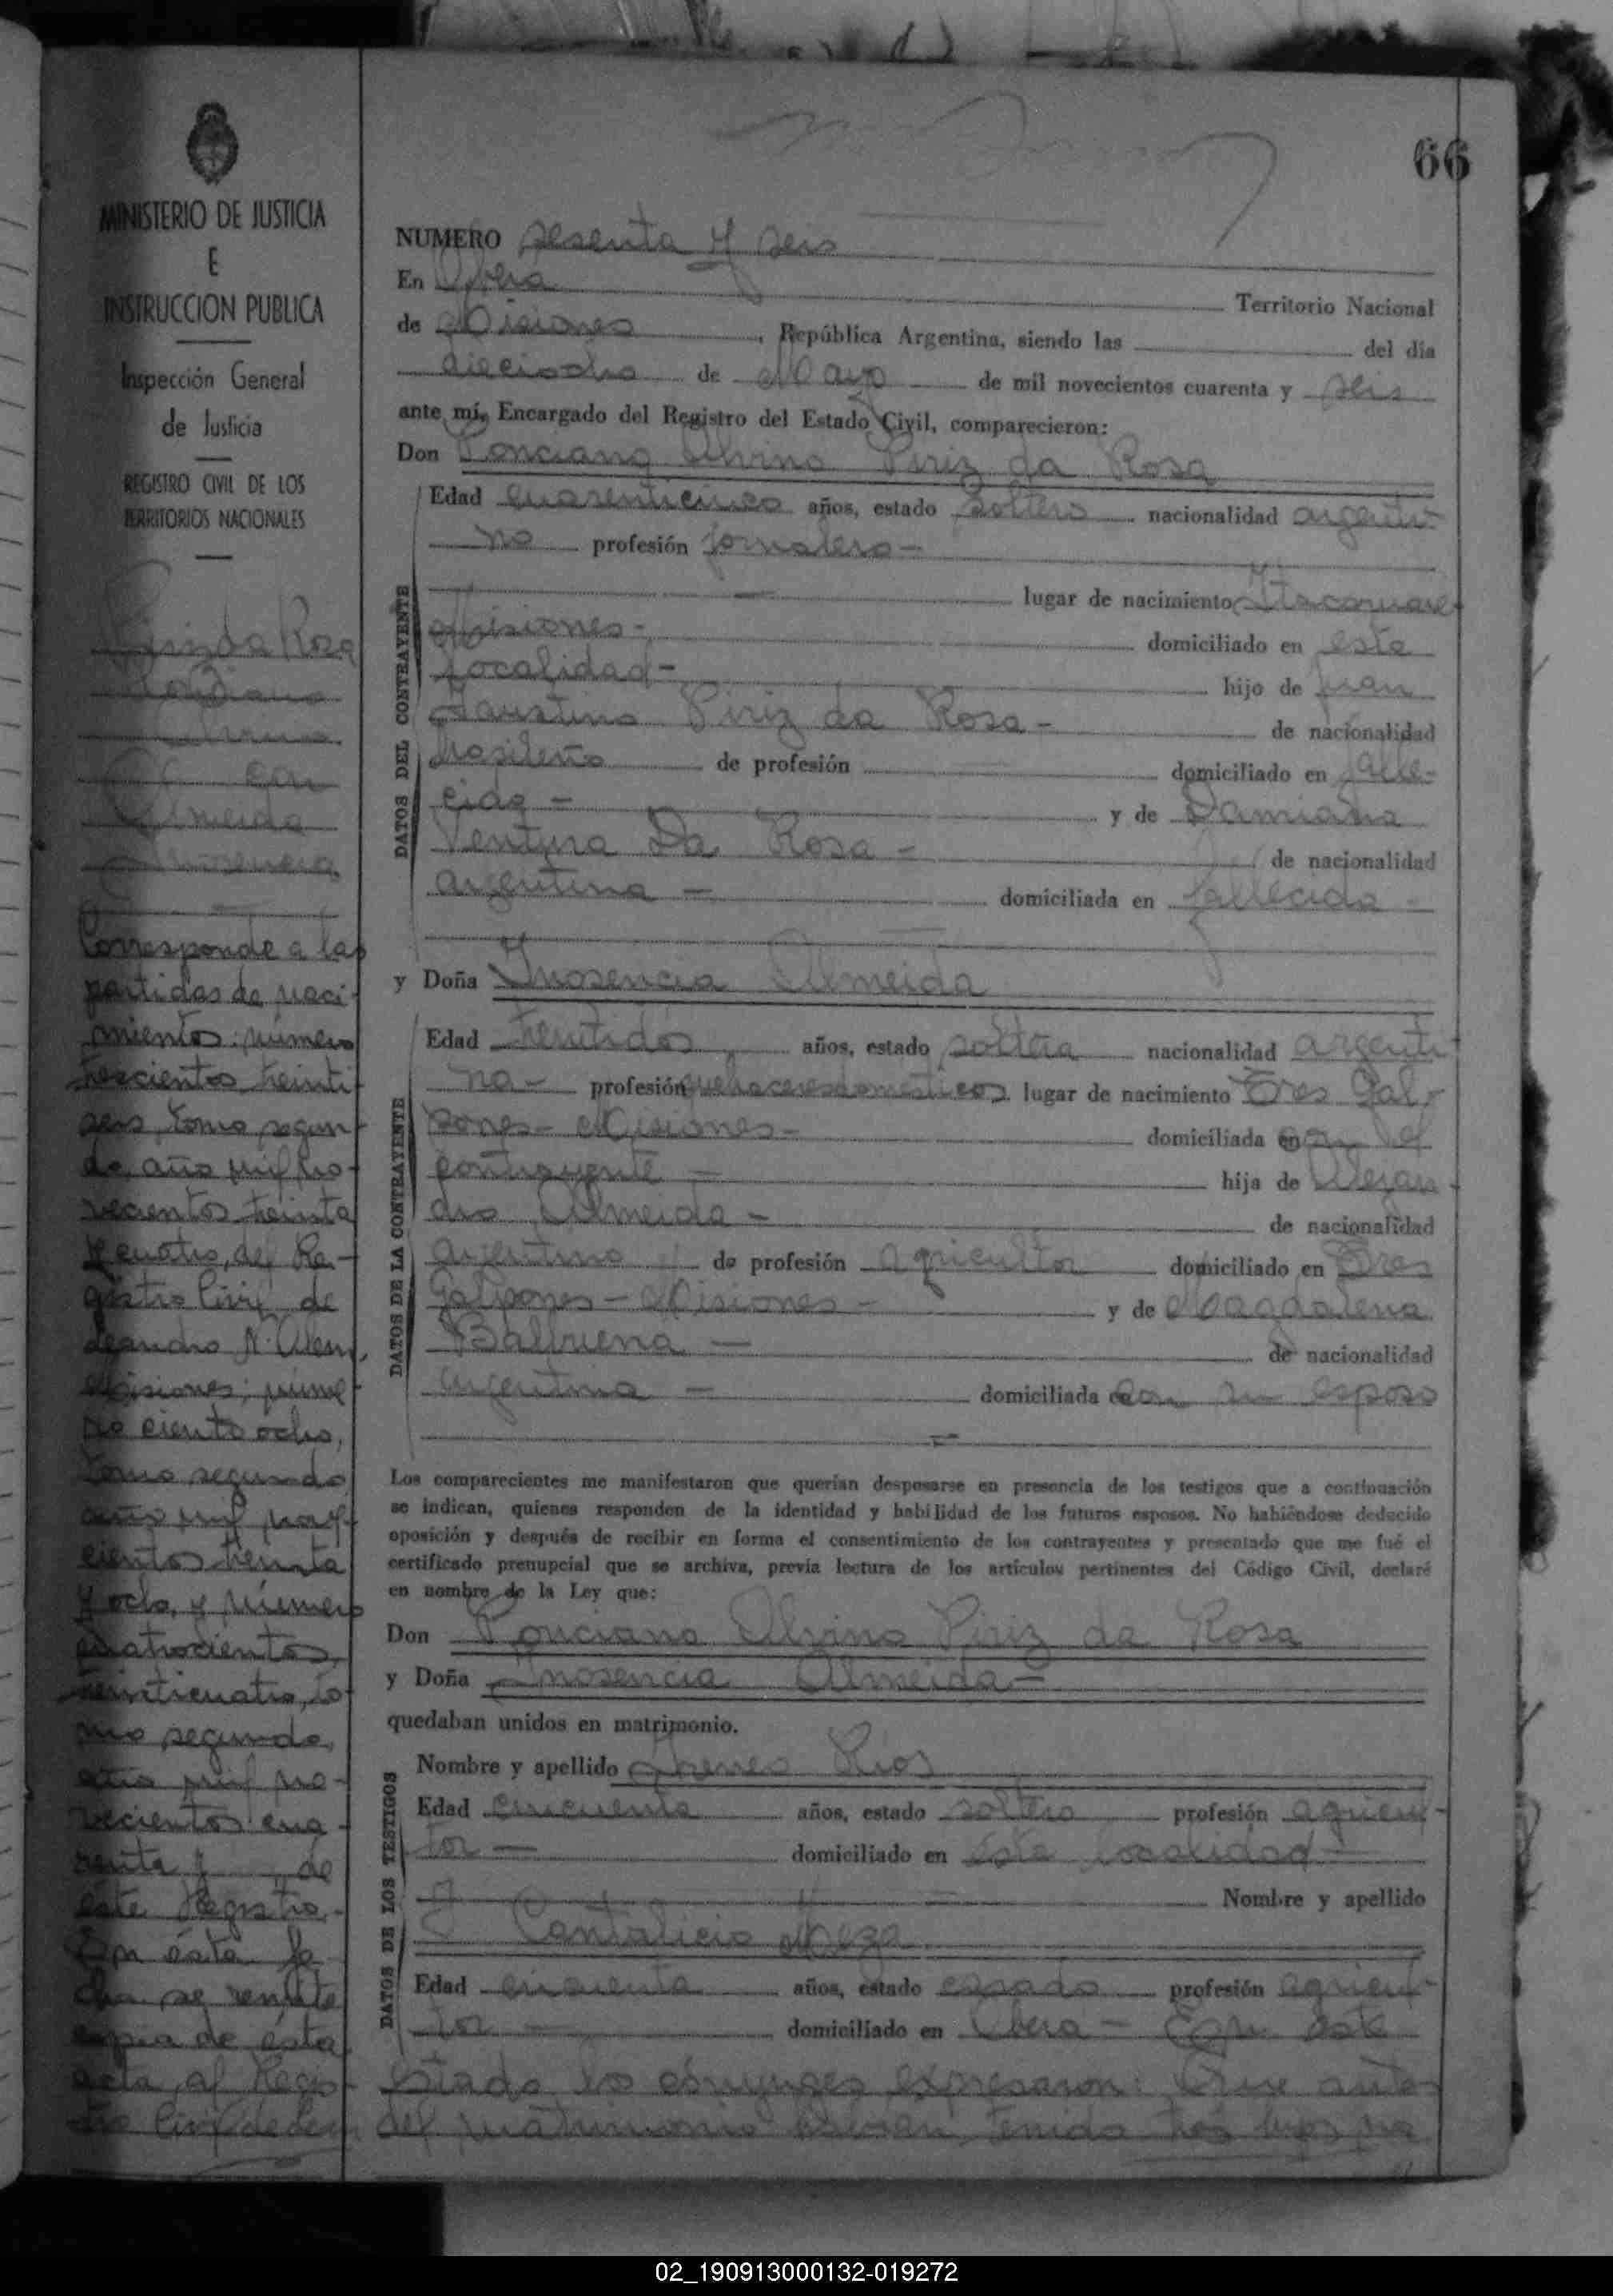 66
MINISTERIO DE JUSTICIA
E
INSTRUCCION PUBLICA
Inspección General
de Justicia
REGISTRO CIVIL DE LOS
TERRITORIOS NACIONALES
Piriz da Rosa
Ponciano
Alvino
con
Almeida
Inosencia
Corresponde a las
partidas de naci-
miento: número
trescientos treinti
seis, tomo segun-
do, año mil no-
vecientos treinta
y cuatro, del Re-
gistro Civil de
Leandro N. Alem,
Misiones; núme-
ro ciento ocho,
tomo segundo
año mil nove
cientos treinta
y ocho, y número
cuatrocientos,
treinticuatro, to-
mo segundo,
año mil no-
vecientos cua-
renta y de
éste Registro.-
Con ésta fe
cha se remite
copia de ésta
acta, al Regis-
tro Civil de Lean
NUMERO sesenta y seis
En Oberá Territorio Nacional
de Misiones, República Argentina, siendo las del día
dieciocho de Mayo de mil novecientos cuarenta y seis
ante mí, Encargado del Registro del Estado Civil, comparecieron:
Don Ponciano Alvino Piriz da Rosa
DATOS DEL CONTRAYENTE
Edad cuarenticinco años, estado soltero nacionalidad argenti-
no profesión jornalero-
lugar de nacimiento Itacaruare
Misiones- domiciliado en esta
localidad- hijo de Juan
Faustino Piriz da Rosa- de nacionalidad
brasileño de profesión domiciliado en falle-
cido - y de Damiana
Ventura Da Rosa - de nacionalidad
argentina - domiciliada en fallecida -
y Doña Inosencia Almeida
DATOS DE LA CONTRAYENTE
Edad treintidos años, estado soltera nacionalidad argenti
na- profesión quehaceres domésticos lugar de nacimiento Tres Gal-
pones- Misiones- domiciliada en con el
contrayente - hija de Alejan-
dro Almeida - de nacionalidad
argentino de profesión agricultor domiciliado en Tres
Galpones - Misiones - y de Magdalena
Balbuena - de nacionalidad
argentina - domiciliada en con su esposo
Los comparecientes me manifestaron que querían desposarse en presencia de los testigos que a continuación
se indican, quienes responden de la identidad y habilidad de los futuros esposos. No habiéndose deducido
oposición y después de recibir en forma el consentimiento de los contrayentes y presentado que me fué el
certificado prenupcial que se archiva, previa lectura de los artículos pertinentes del Código Civil, declaré
en nombre de la Ley que:
Don Ponciano Alvino Piriz da Rosa
y Doña Inosencia Almeida-
quedaban unidos en matrimonio.
DATOS DE LOS TESTIGOS
Nombre y apellido Ireneo Rios
Edad cincuenta años, estado soltero profesión agricul-
tor - domiciliado en ésta localidad -
Nombre y apellido
Cantalicio Meza
Edad cincuenta años, estado casado profesión agricul-
tor - domiciliado en Oberá - En este
estado los cónyuges expresaron: Que antes
del matrimonio habían tenido tres hijos
02_190913000132-019272